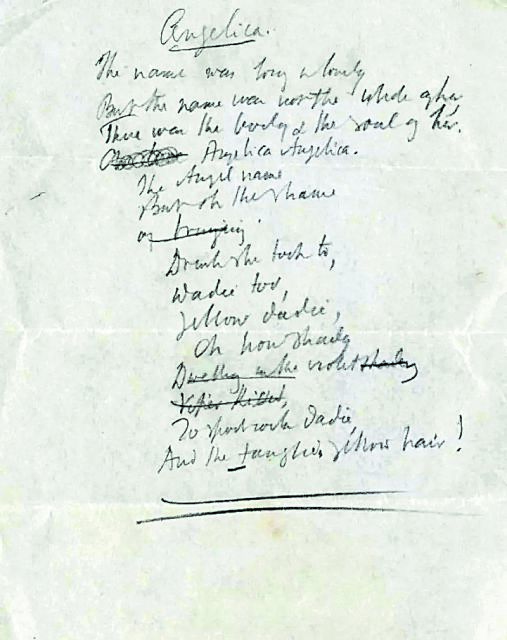 Angelica.
The name was long & lovely
But the name was not the whole of her,
There was the body & the soul of her.
Angelica Angelica.
The Angel name
But oh the shame
of
Drink she took to,
too,
Yellow
Oh how shady
Dwelling in the violet shades
To sport with
And the tangled yellow hair!